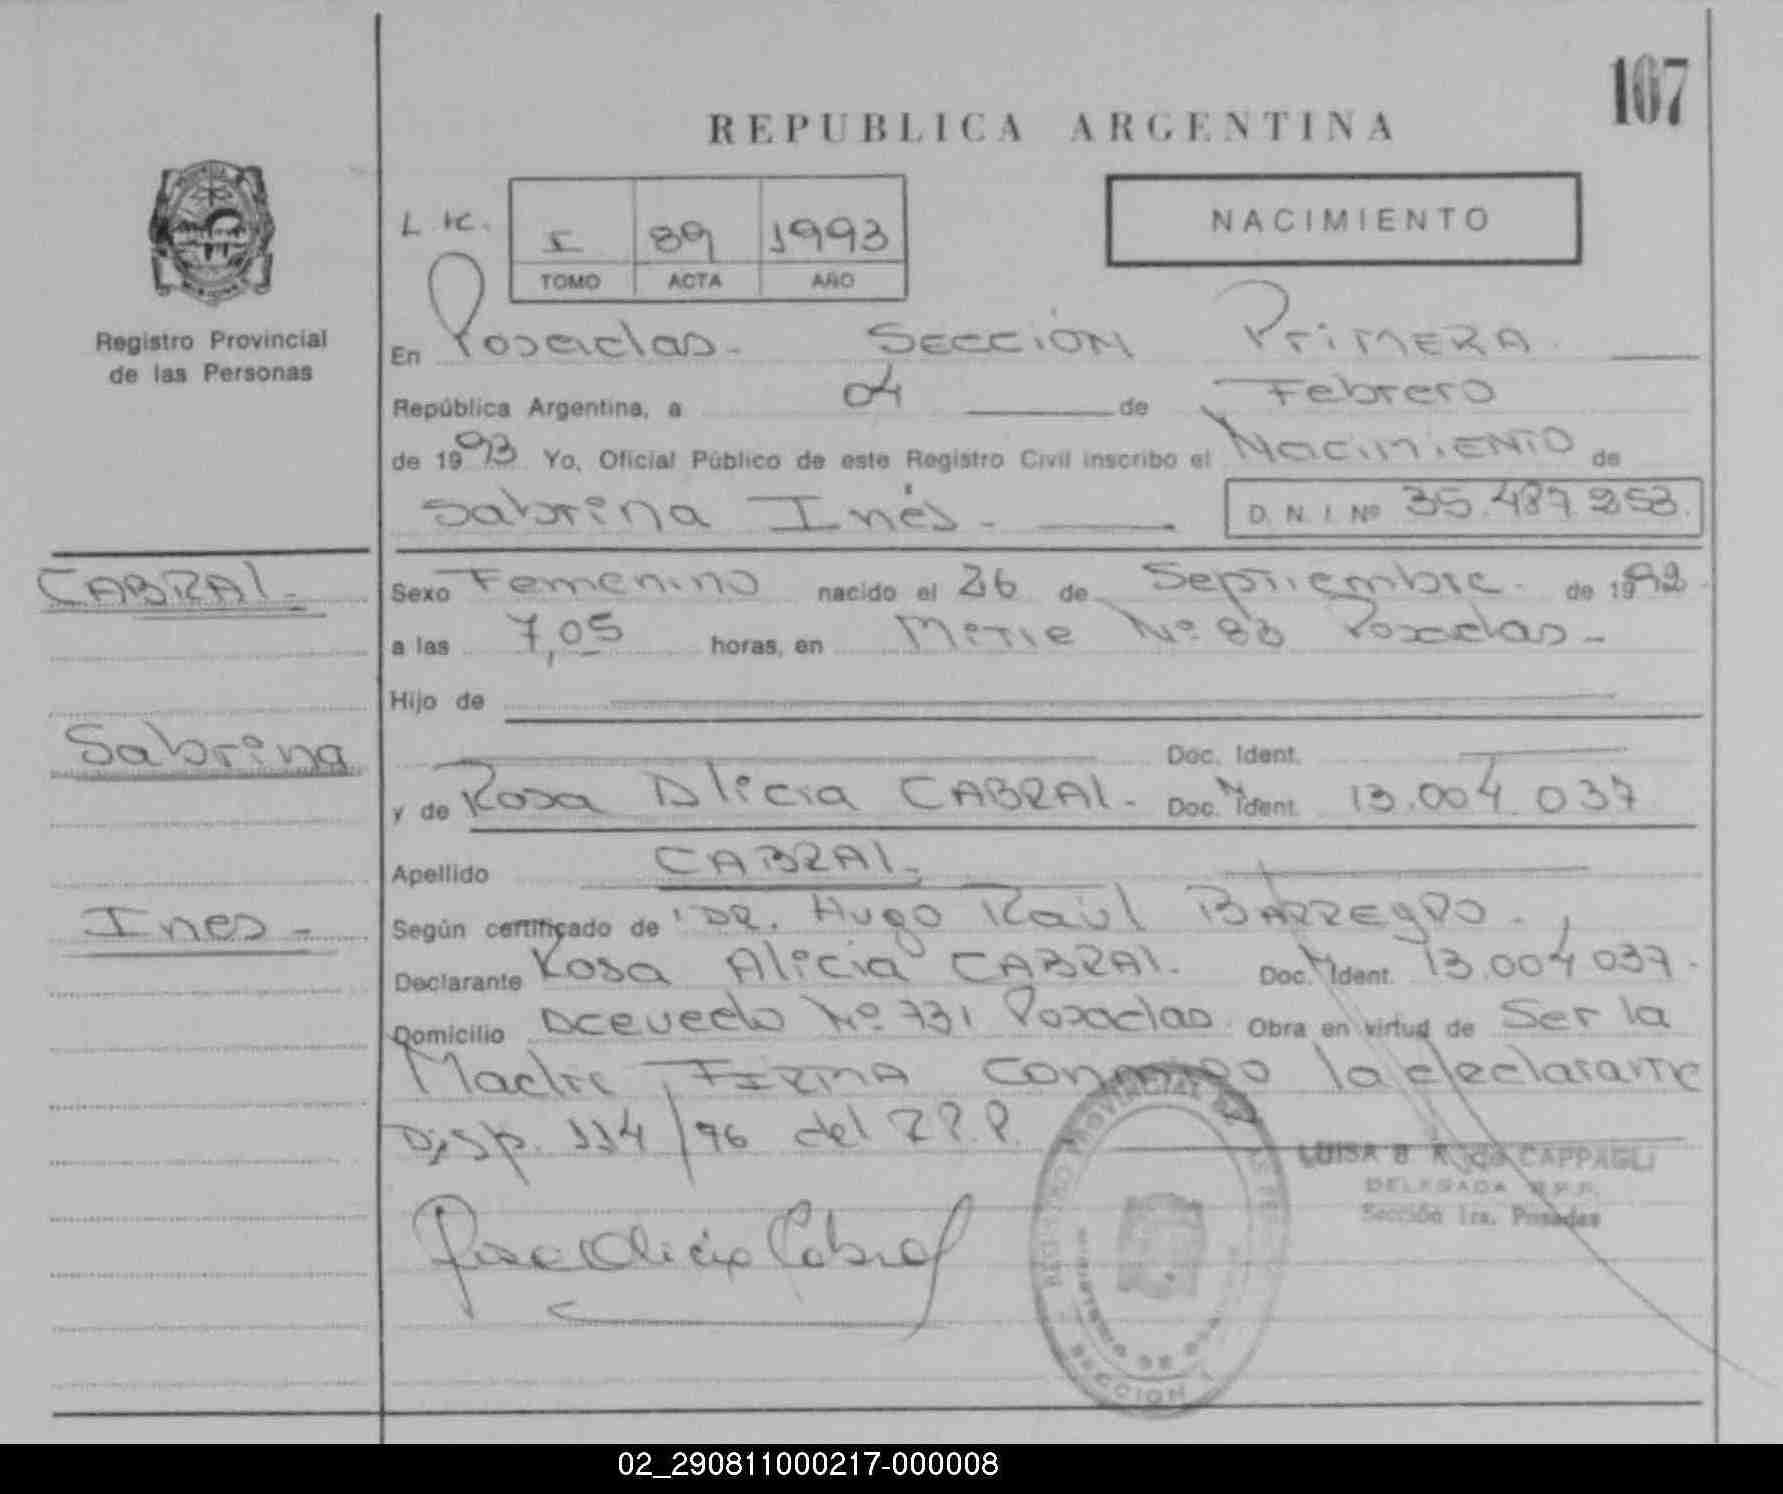 107
REPUBLICA ARGENTINA
L.K.
I 89 1993
TOMO ACTA AÑO
NACIMIENTO
Registro Provincial
de las Personas
En Posadas- SECCIÓN PriMERA.
República Argentina, a 04 de Febrero
de 1993 Yo, Oficial Público de este Registro Civil inscribo el NaciMiENTO de
Sabrina Inés- D. N. I. Nº 35.487.253.
CABRAl-
Sexo Femenino nacido el 26 de Septiembre. de 1992.
a las 7,05 horas, en Mitre Nº 83 Posadas-
Hijo de
Sabrina
Doc. Ident.
y de Rosa Alicia CABRAl- Doc. N Ident. 13.004 037
Apellido CABRAl-
Ines-
Según certificado de DR. Hugo Raúl
Declarante Rosa Alicia CABRAl. Doc. N Ident. 13.004 037-
Domicilio Acevedo Nº 731 Posadas Obra en virtud de Ser la
Madre, FIRMA conmigo la declarante
Disp. 114/96 del R.P.P.
LUISA B CAPPAGLI
DELEGADA R.P.P.
Sección 1ra. Posadas
Rosa Alicia Cabral
REGISTRO PROVINCIAL DE LAS PERSONAS
SECCION 1
02_290811000217-000008